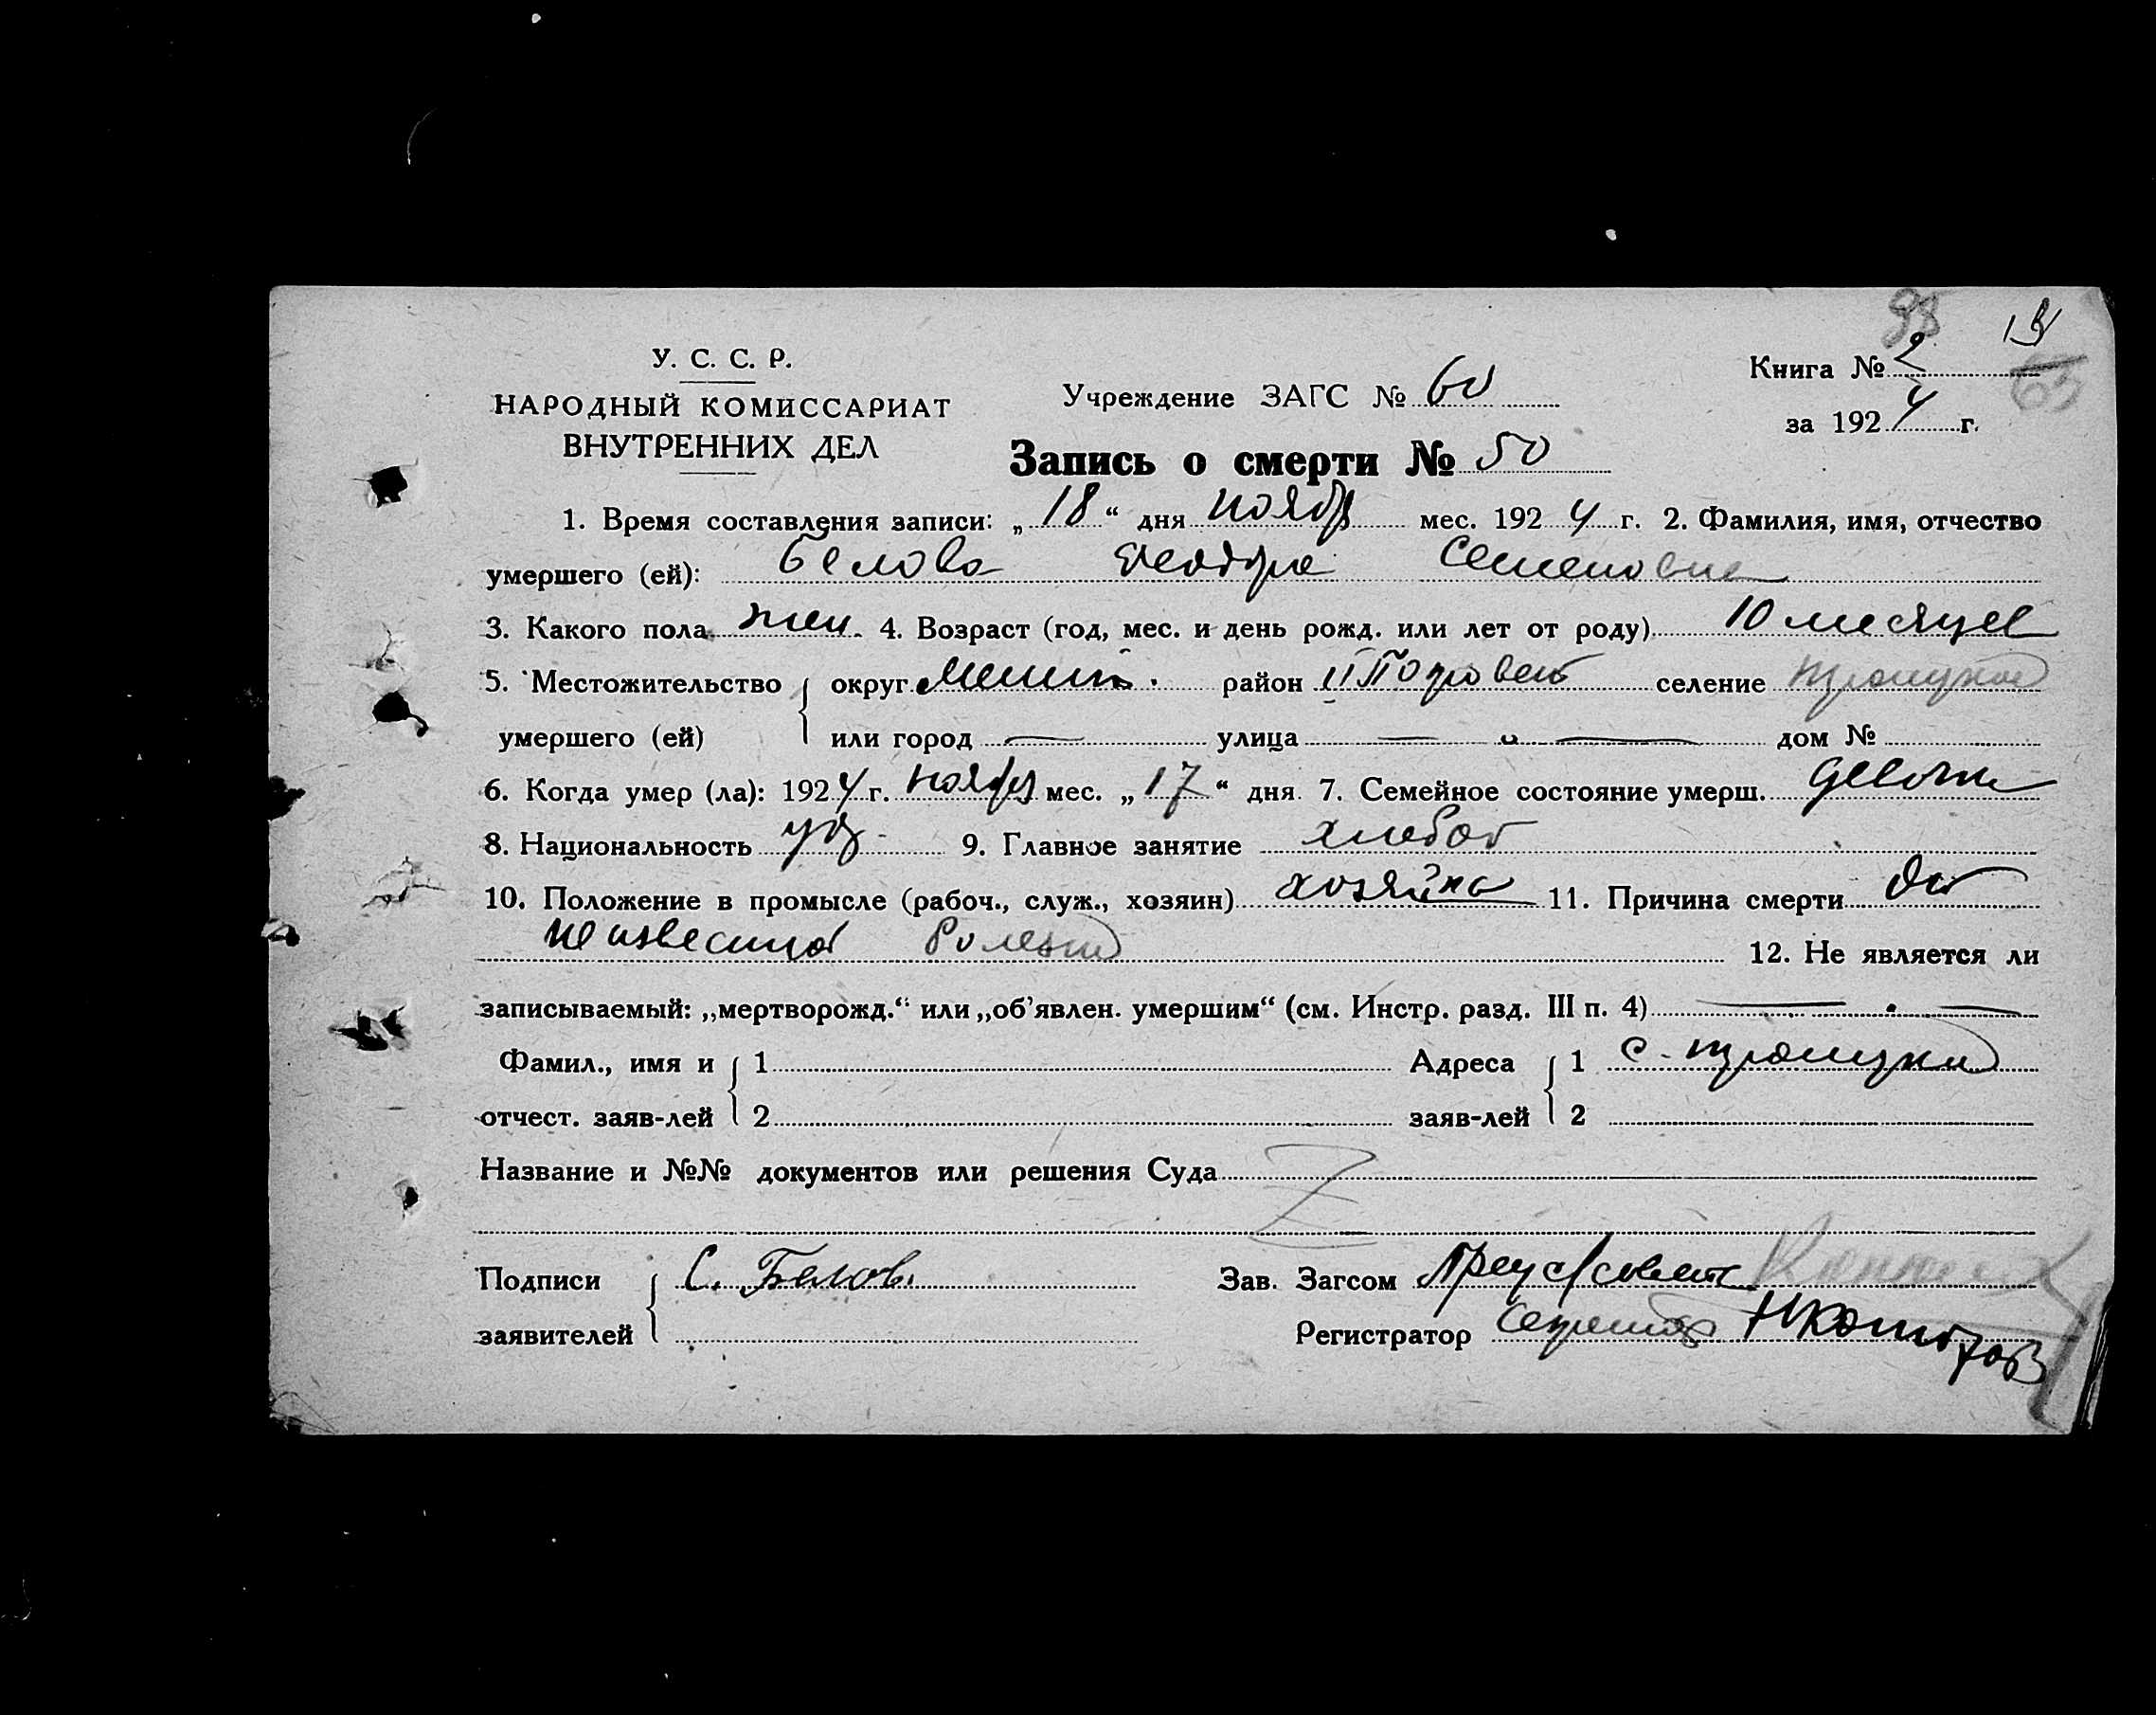 98 19
У. С. С. Р.
Книга № 2
НАРОДНЫЙ КОМИССАРИАТ
Учреждение ЗАГС № 60
65
за 1924 г.
ВНУТРЕННИХ ДЕЛ
Запись о смерти № 50
1. Время составления записи: „18“ дня ноябр мес. 1924 г. 2. Фамилия, имя, отчество
умершего (ей): Белова Феодора Семеновна
3. Какого пола жен. 4. Возраст (год, мес. и день рожд. или лет от роду) 10 месяцев
5. Местожительство округ район селение Троицкое
умершего (ей) или город — улица — „ — дом №
6. Когда умер (ла): 1924 г. ноября мес. „17“ дня 7. Семейное состояние умерш. девочка
8. Национальность 9. Главное занятие хлебоп
10. Положение в промысле (рабоч., служ., хозяин) 11. Причина смерти От
неизвестной болезни 12. Не является ли
записываемый: „мертворожд.“ или „об’явлен. умершим“ (см. Инстр. разд. III п. 4) — „ —
Фамил., имя и 1 Адреса 1 с. Троицкий
отчест. заяв-лей 2 заяв-лей 2
Название и №№ документов или решения Суда
Подписи С. Белов Зав. Загсом
заявителей Регистратор Секретарь